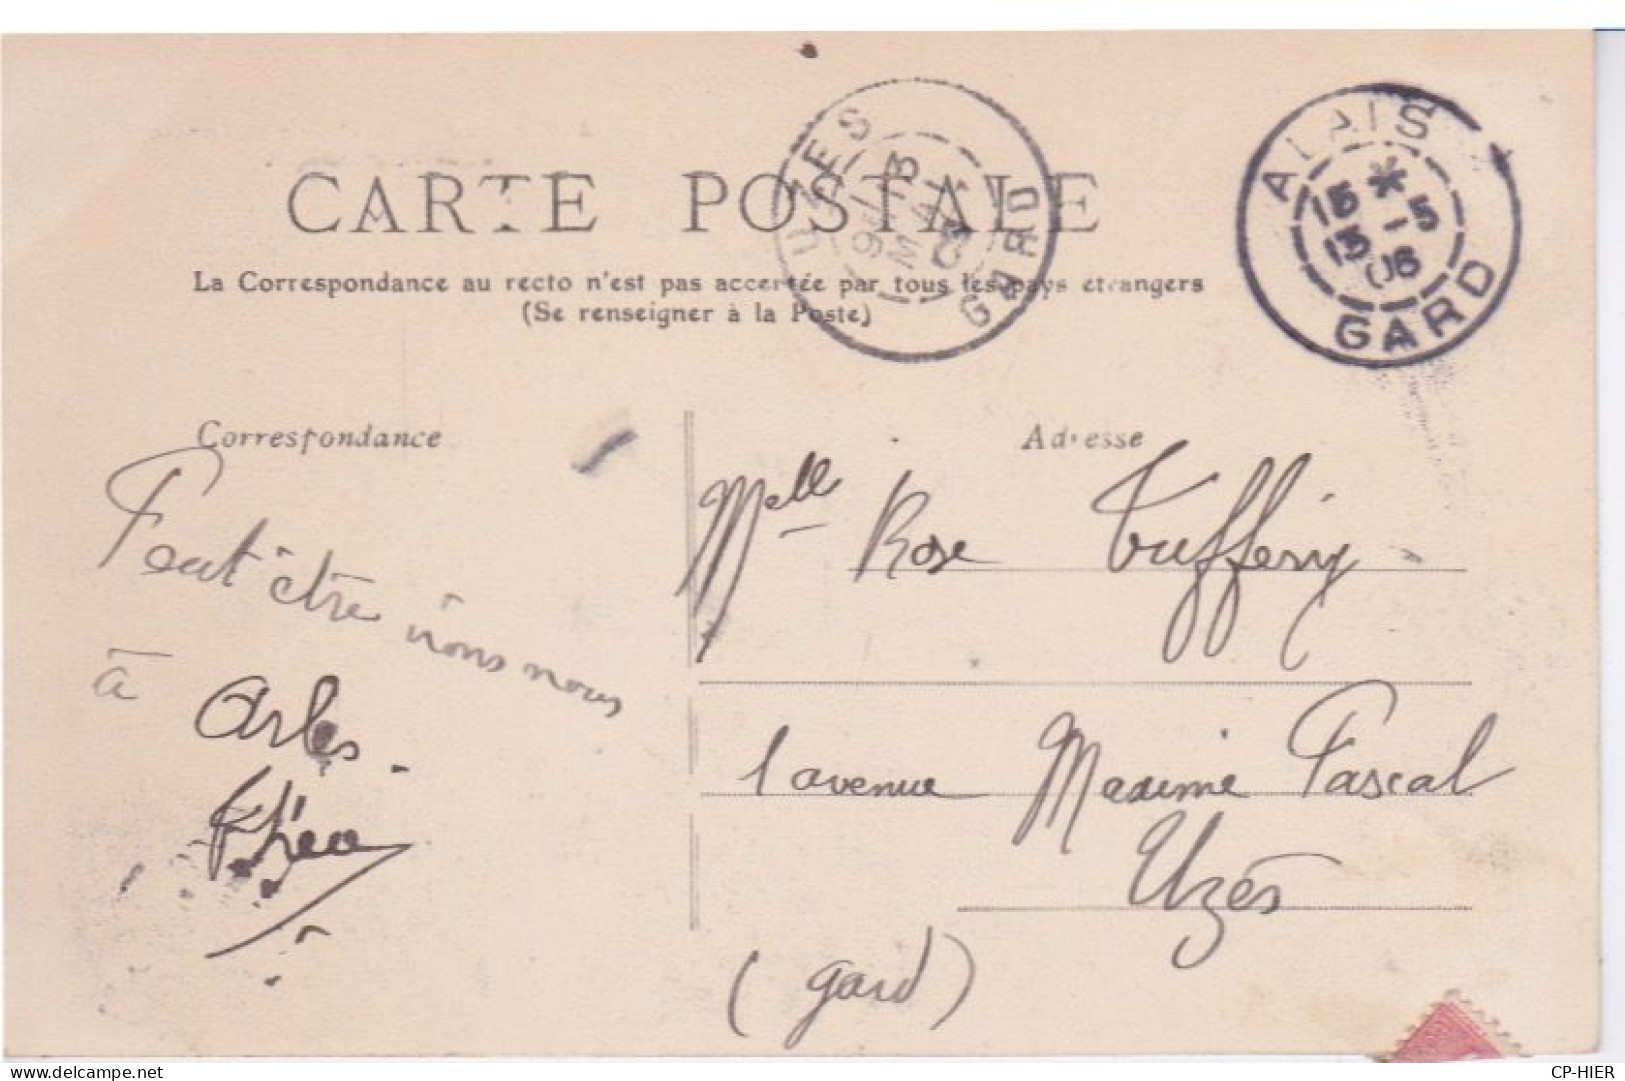 CARTE POSTALE
La Correspondance au recto n'est pas acceptée par tous les pays étrangers
(Se renseigner à la Poste)
UZES
GARD
ALAIS
*
15 -5
06
GARD
Correspondance
Adresse
Peut être irons nous
à Arles.
Melle Rose Tuffery
1 avenue Maxime Pascal
Uzès
(gard)
delcampe.net
CP-HIER